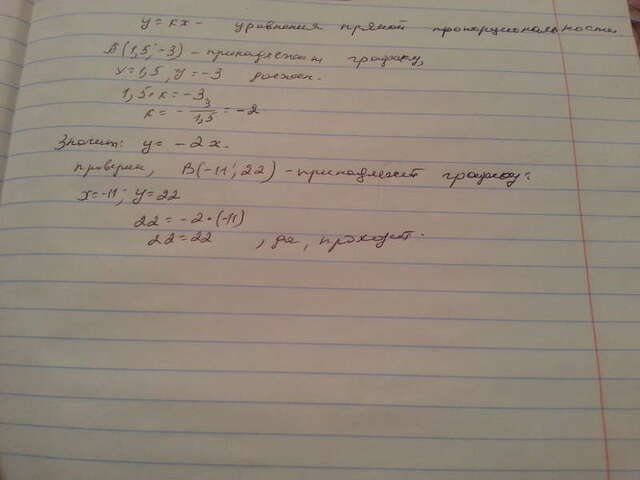 y = kx - уравнения прямой пропорциональности.
A(1,5; -3) - принадлежит графику,
x = 1,5, y = -3
1,5 · k = -3
k = - 3/1,5 = -2
Значит: y = -2x.
проверим, B(-11; 22) - принадлежит графику?
x = -11; y = 22
22 = -2 · (-11)
22 = 22 , да, проходит.